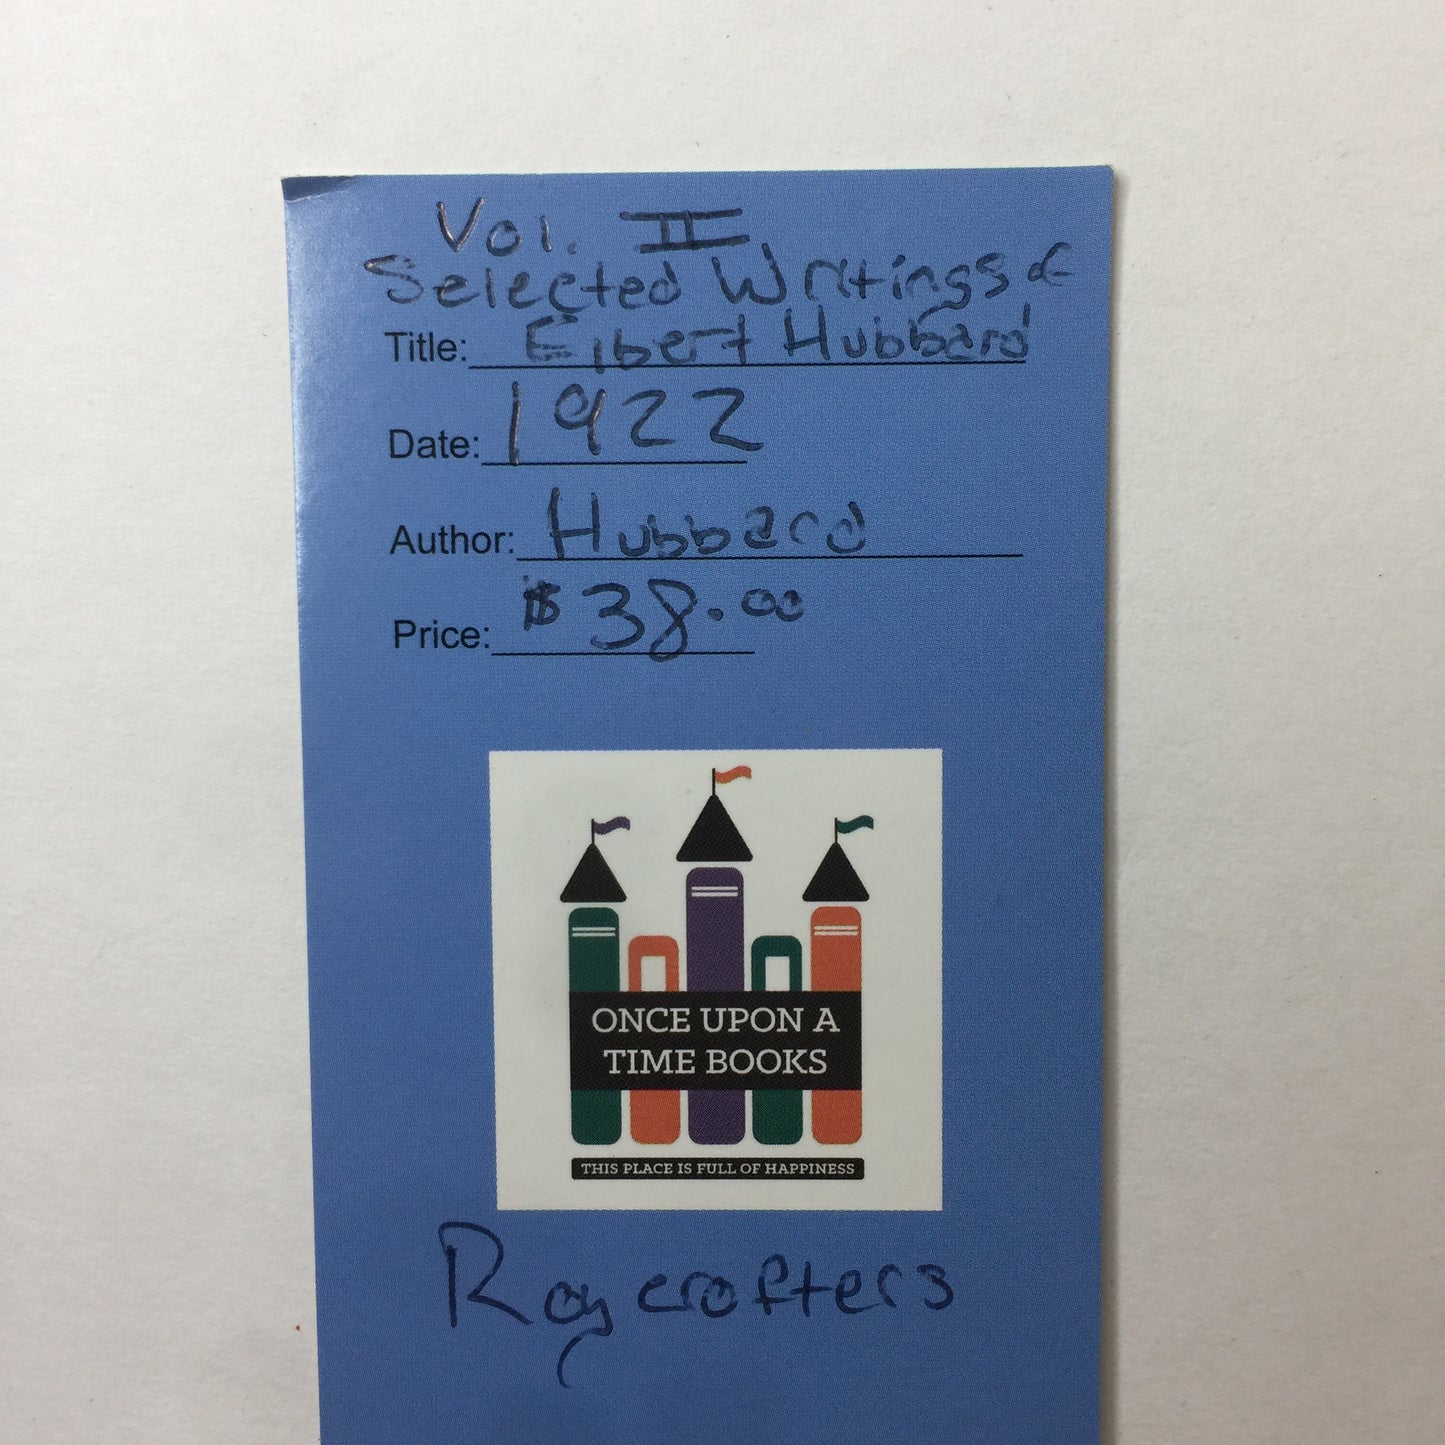 Vol. II
Selected Writings of
Title: Elbert Hubbard
Date: 1922
Author: Hubbard
Price: $38.00
ONCE UPON A
TIME BOOKS
THIS PLACE IS FULL OF HAPPINESS
Roycrofters